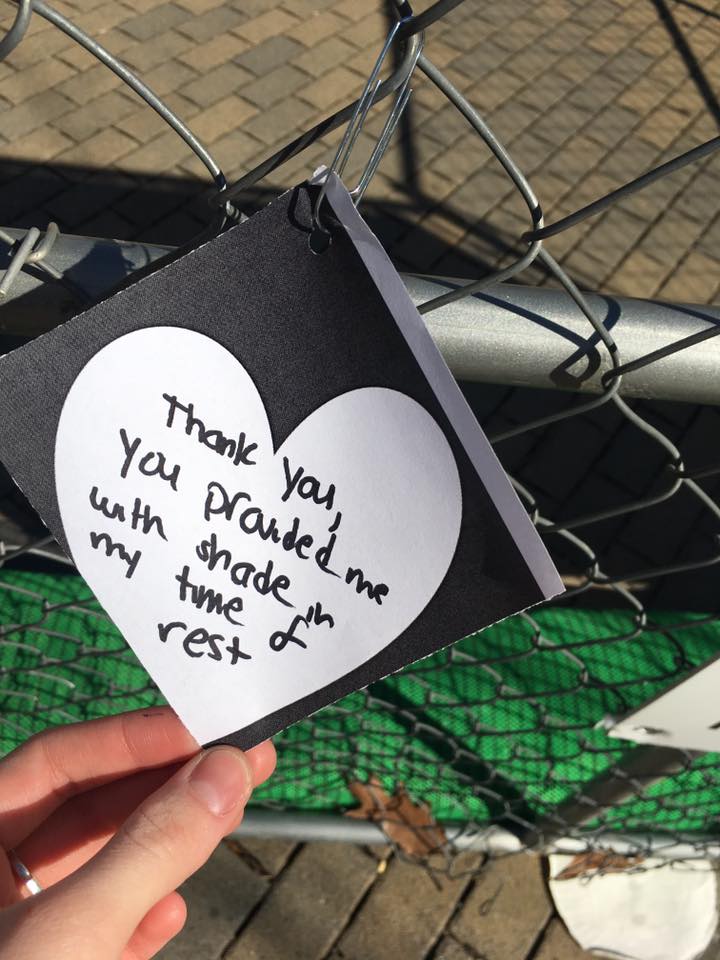 Thank you,
you provided me
with shade in
my time of
rest